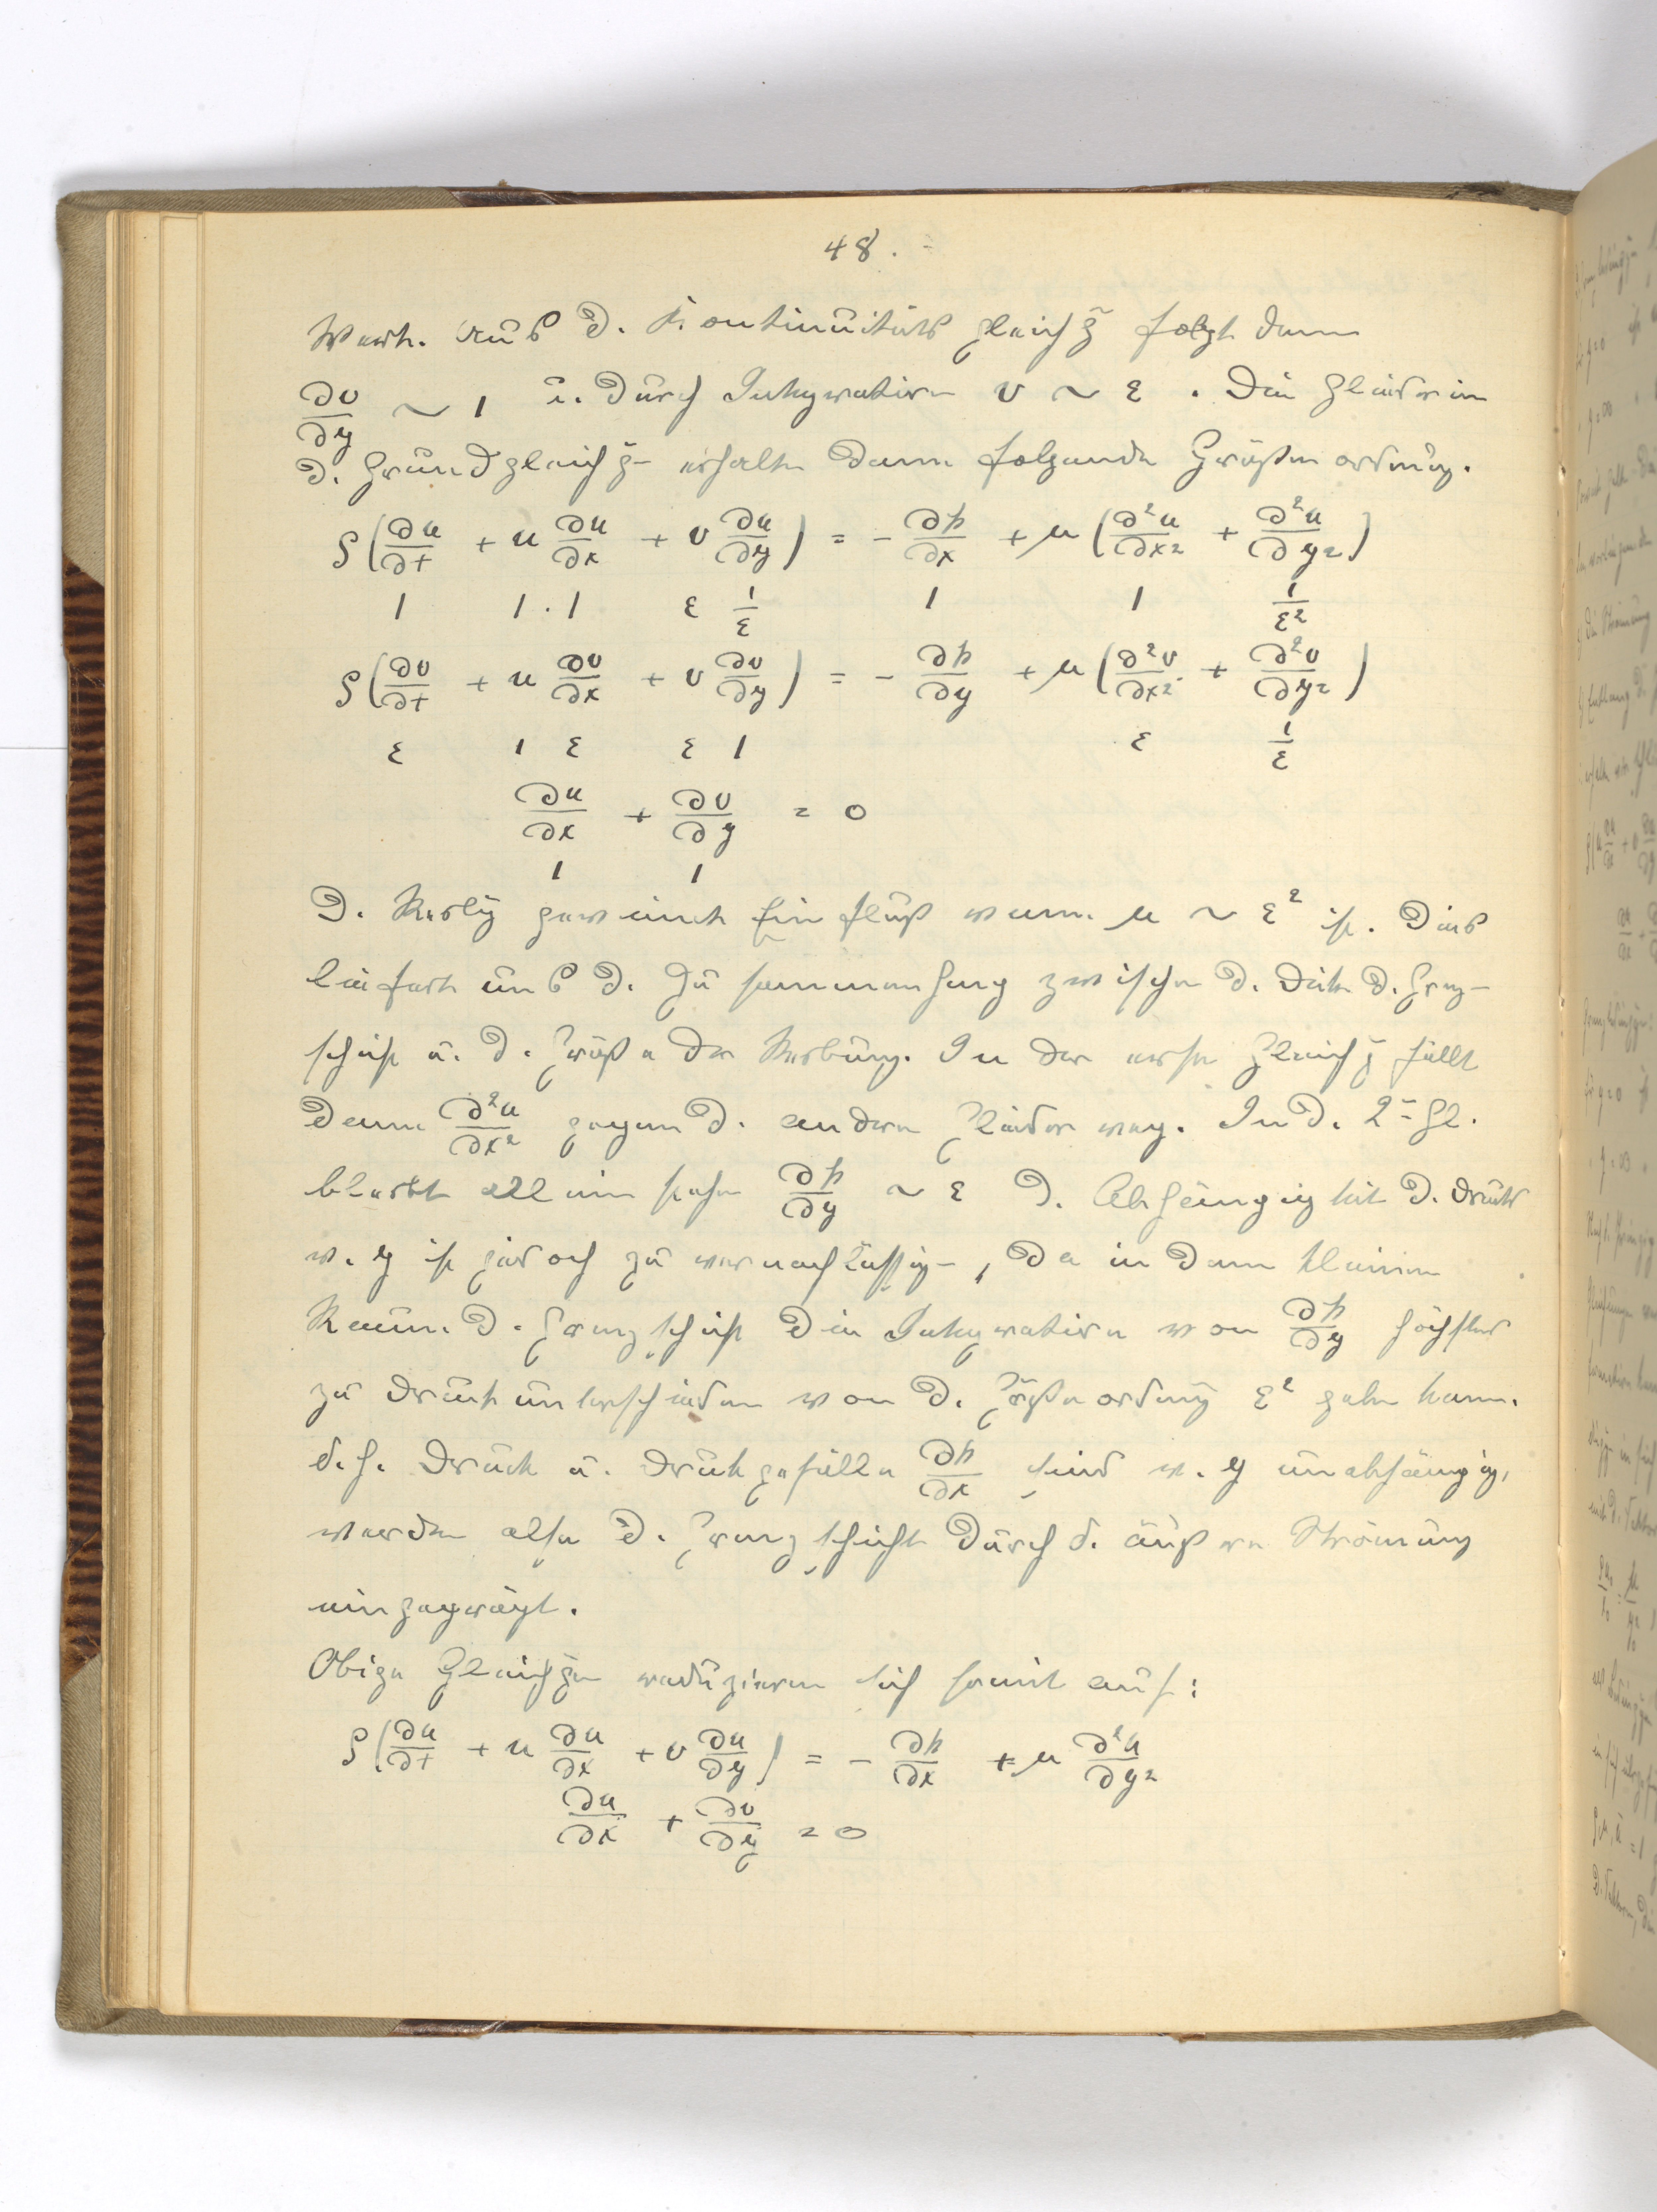 48.
Wert. Aus d. Kontinuitätsgleichg folgt dann
∂v/∂y ~ 1 u. durch Integration v ~ ε. Die Glieder in
d. Grundgleichg- erhalten dann folgende Größenordnung.
ρ(∂u/∂t + u ∂u/∂x + v ∂u/∂y) = - ∂p/∂x + μ(∂²u/∂x² + ∂²u/∂y²)
1 1·1 ε 1/ε 1 1 1/ε²
ρ(∂v/∂t + u ∂v/∂x + v ∂v/∂y) = - ∂p/∂y + μ(∂²v/∂x² + ∂²v/∂y²)
ε 1 ε ε 1 ε 1/ε
∂u/∂x + ∂v/∂y = 0
1 1
D. Reibg gewinnt Einfluß wenn μ ~ ε² ist. Dies
liefert uns d. Zusammenhang zwischen d. Dicke d. Grenz-
schicht u. d. Größe der Reibung. In der ersten Gleichg fällt
dann ∂²u/∂x² gegen d. andern Glieder weg. In d. 2- Gl.
bleibt allein stehn ∂p/∂y ~ ε D. Abhängigkeit d. Drucks
v. y ist jedoch zu vernachlässig-, da in dem kleinen
Raum d. Grenzschicht die Integration von ∂p/∂y höchstens
zu Druckunterschieden von d. Größenordnung ε² geben kann.
d.h. Druck u. Druckgefälle ∂p/∂x sind v. y unabhängig,
werden also d. Grenzschicht durch d. äußere Strömung
eingeprägt.
Obige Gleichgen reduzieren sich somit auf:
ρ(∂u/∂t + u ∂u/∂x + v ∂u/∂y) = - ∂p/∂x + μ ∂²u/∂y²
∂u/∂x + ∂v/∂y = 0